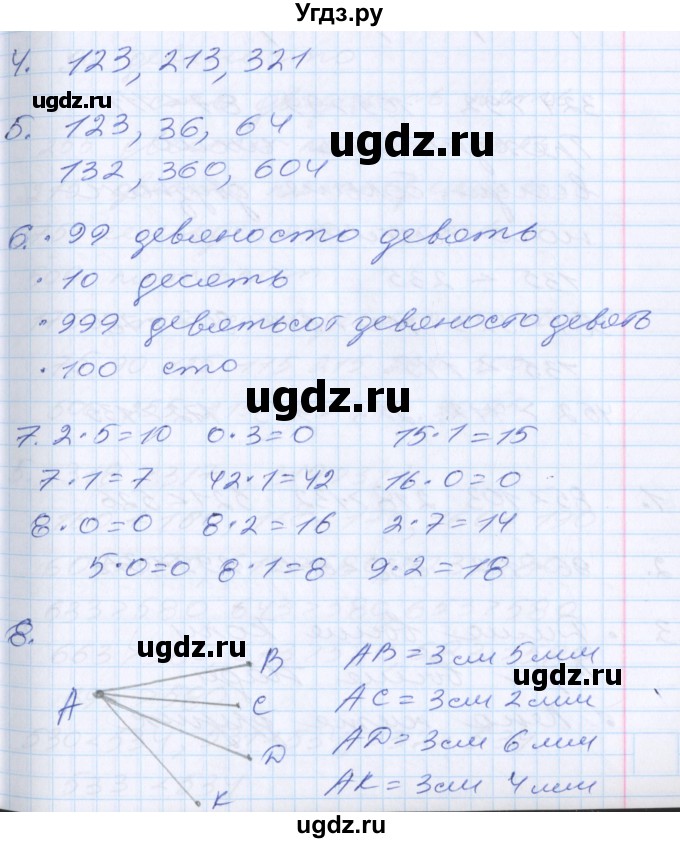 Угдз.ру
4. 123, 213, 321
ugdz.ru
ugdz.ru
5. 123, 36, 64
132, 360, 604
6. · 99 девяносто девять
· 10 десять
ugdz.ru
· 999 девятьсот девяносто девять
· 100 сто
ugdz.ru
7. 2·5=10 0·3=0 15·1=15
7·1=7 42·1=42 16·0=0
8·0=0 8·2=16 2·7=14
5·0=0 8·1=8 9·2=18
8.
ugdz.ru
B AB = 3 см 5 мм
ugdz.ru
A C AC = 3 см 2 мм
D AD = 3 см 6 мм
K AK = 3 см 4 мм
ugdz.ru
ugdz.ru